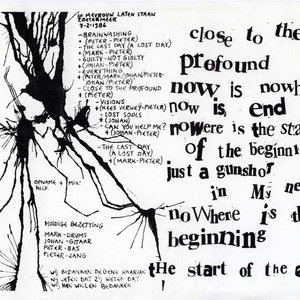 MEVROUW LATEN STAAN
ZOETERMEER
7-2-1986
-BRAINWASHING
(PETER-PIETER)
-THE LAST DAY (A LOST DAY)
(MARK-PIETER)
-GUILTY-NOT GUILTY
(JOHAN-PIETER)
-EVERYTHING
(PETER/MARK/JOHAN/PIETER-
JOHAN/PIETER)
-CLOSE TO THE PROFOUND
(PIETER)
-VISIONS
(KEES VERWEY-PIETER)
-LOST SOULS
(JOHAN)
-CAN YOU HELP ME?
(JOHAN-PIETER)
-THE LAST DAY
(A LOST DAY)
(MARK-PIETER)
OPNAME & MIX:
NICK
HUIDIGE BEZETTING
MARK-DRUMS
JOHAN-GITAAR
PETER-BAS
PIETER-ZANG
WIJ BEDANKEN DEGENE WAARVAN
WIJ WETEN DAT ZIJ WETEN DAT
WIJ HEN WILLEN BEDANKEN
close to the
profound
now is nowh
now is end
nowere is the sta
of the beginni
just a gunshot
in My ne
noWhere is d
beginning
tHe start of the